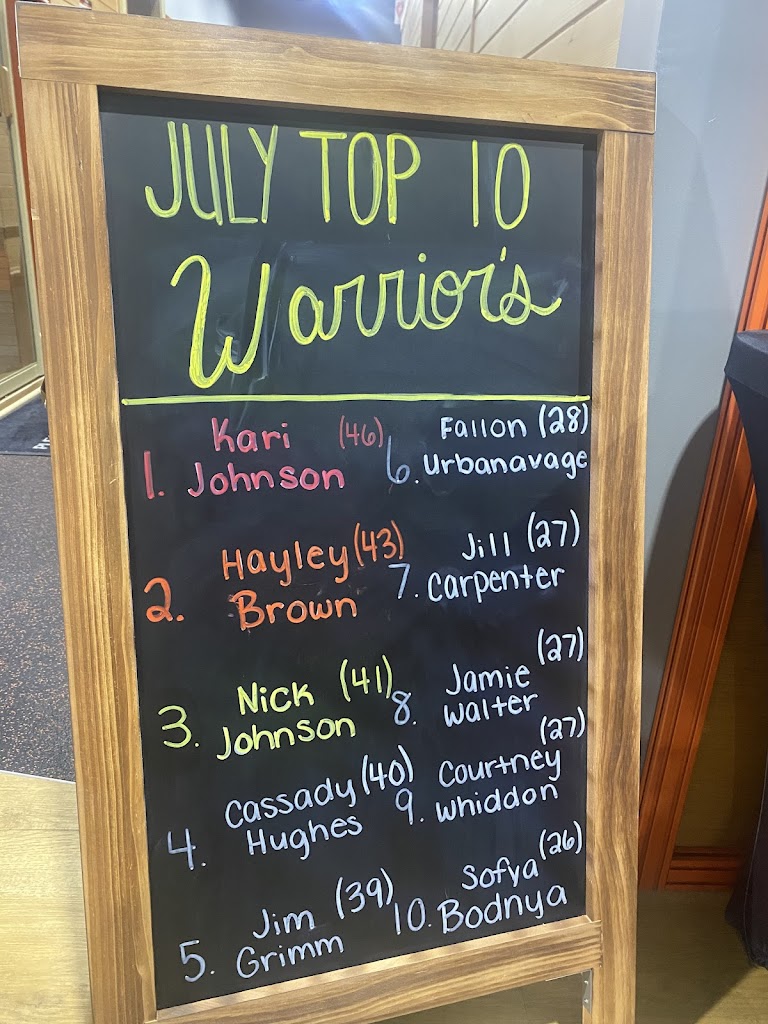 JULY TOP 10
Warrior's
1. Kari (46)
Johnson
2. Hayley (43)
Brown
3. Nick (41)
Johnson
4. Cassady (40)
Hughes
5. Jim (39)
Grimm
6. Fallon (28)
Urbanavage
7. Jill (27)
Carpenter
8. Jamie (27)
Walter
9. Courtney (27)
Whiddon
10. Sofya (26)
Bodnya